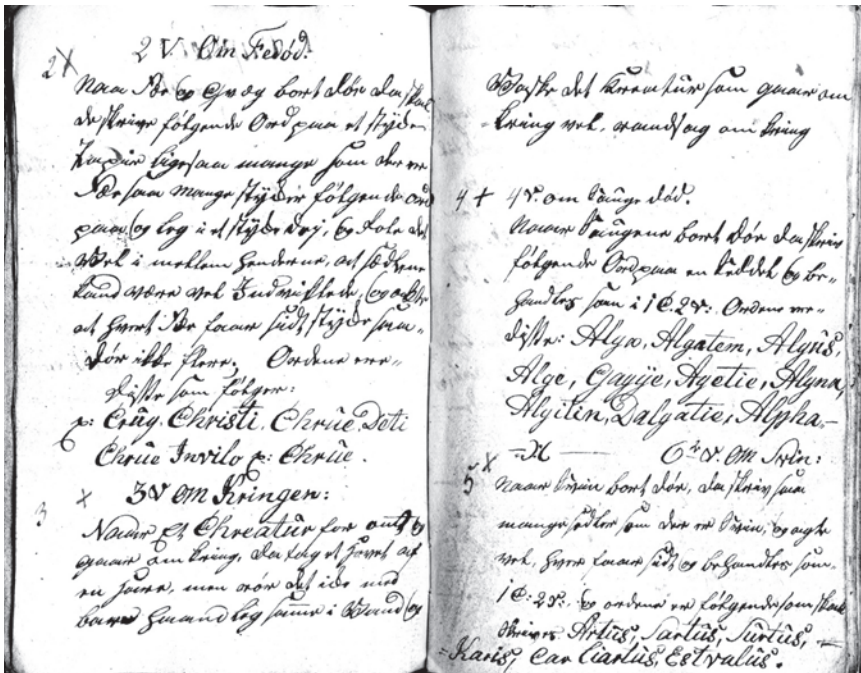 2 V. Om Fedød.
2 X
Naar Fæ og Qvæg bort dør da skal
de skrive følgende Ord paa et stykke
Papir ligesaa mange som der er
Fæ saa mange stykker følgende Ord
paa, og leg i et stykke Dey, og
vel i mellem Henderne, at sædlene
kand være vel Indviklede, og
at hvert Fæ faar sidt stykke saa
dør ikke flere. Ordene ere
disse som følger:
p: Crüg. Christi, Chrüe, Deti
Chrüe Invilo p: Chrüe.
3 X 3 V Om Kringen:
Naar Et Chreatür for ondt og
gaar om kring, da tag et Hovet af
en men rør det icke med
bare Haand leg samme i Vand og
Vaske det Kreatür som gaar om
kring vel. om kring
4 + 4 V. om Unge død.
Naar Ungene bort dør da skriv
følgende Ord paa en Seddel og be-
handles som i 1 C. 2 V: Ordene ere
disse: Alga, Algatem, Algüs,
Alge, Gagÿe, Agetie, Algna,
Algitin, Dalgatie, Alpha.
5 X 6te V. Om Svin:
Naar Svin bort dør, da skriv saa
mange sedler som der er Svin, og agte
vel, hver faar sidt og behandles som
1 C: 2 V:. og ordene er følgende som skal
skrives Artüs, Sartüs, Sürtüs,
Karis, Car Ciartüs, Estvalüs.